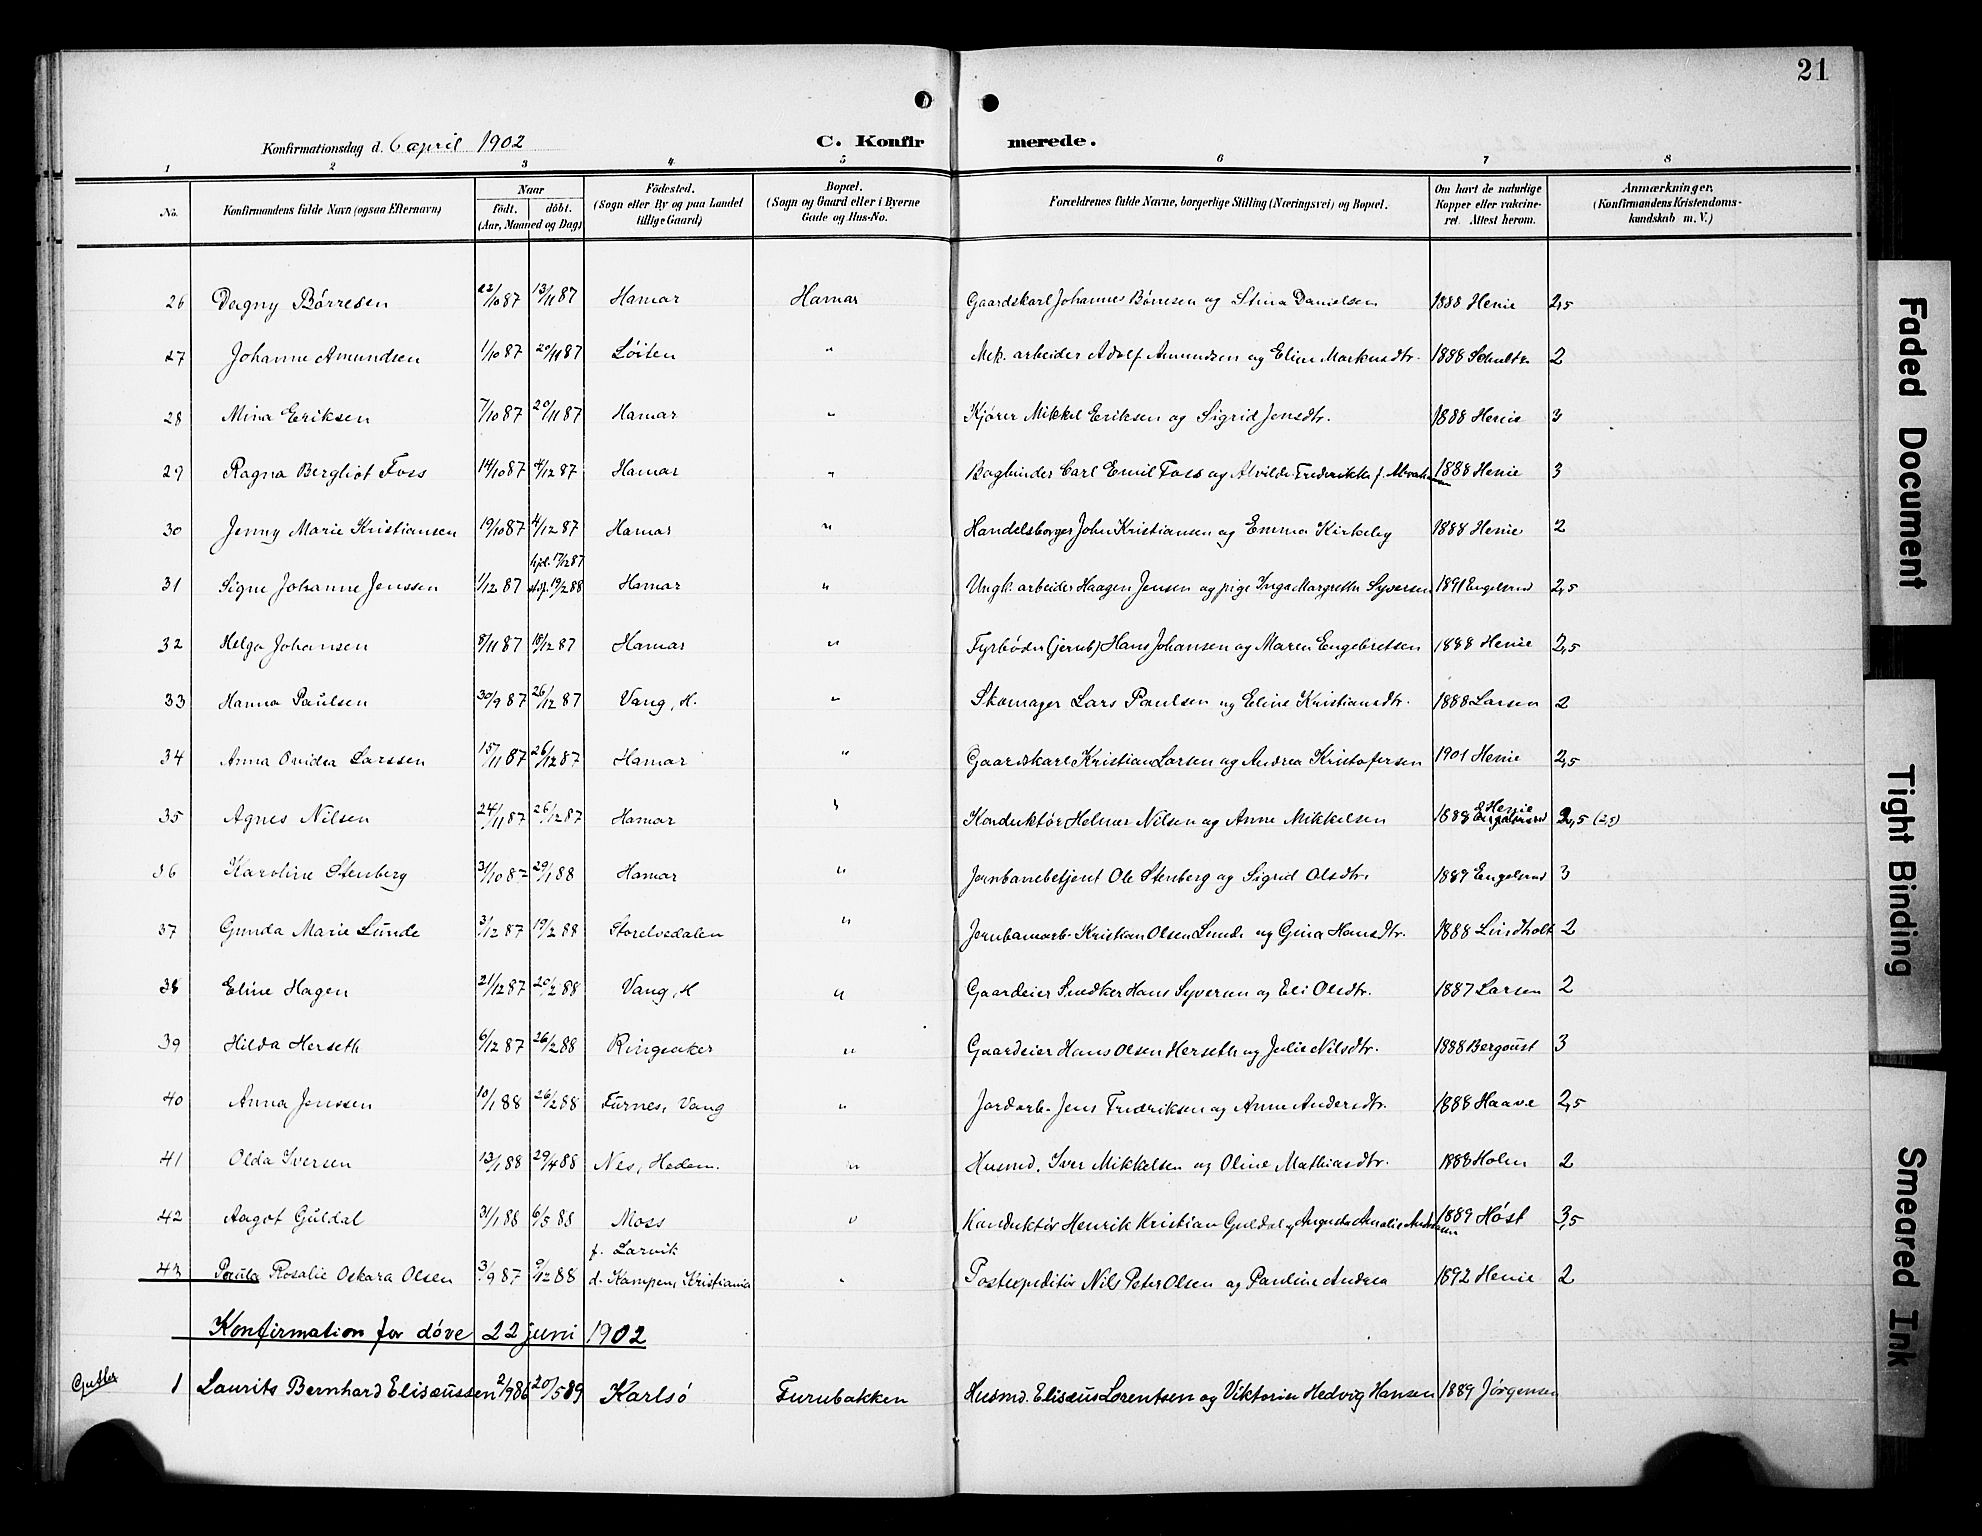 21
Konfirmationsdag d. 6 april 1902 C. Konfirmerede.
1 2 3 4 5 6 7 8
No. Konfirmandens fulde Navn (ogsaa Efternavn) Naar födt. döbt. (Aar, Maaned og Dag) Födested. (Sogn eller By og paa Landet tillige Gaard) Bopæl. (Sogn og Gaard eller i Byerne Gade og Hus-No. Forældrenes fulde Navne, borgerlige Stilling (Næringsvei) og Bopæl. Om havt de naturlige Kopper eller vakcineret. Attest herom. Anmærkninger, (Konfirmandens Kristendomskundskab m. V.)
26 Dagny Börresen 22/10 87 13/11 87 Hamar Hamar Gaardskarl Johannes Börresen og Stina Danielsen 1888 Henie 2,5
27 Johanne Amundsen 1/10 87 20/11 87 Löiten " Mek. arbeider Adolf Amundsen og Eline Markusdtr. 1888 Schultz 2
28 Mina Eriksen 7/10 87 20/11 87 Hamar " Kjører Mikkel Eriksen og Sigrid Jensdtr. 1888 Henie 3
29 Ragna Bergliot Foss 14/10 87 4/12 87 Hamar " Bogbinder Carl Emil Foss og Alvilde Frederikke f. 1888 Henie 3
30 Jenny Marie Kristiansen 19/10 87 4/12 87 Hamar " Handelsborger John Kristiansen og Emma Kirkeby 1888 Henie 2
31 Signe Johanne Jenssen 1/12 87 hjd. 17/12 87 stf. 19/2 88 Hamar " Ungk. arbeider Haagen Jensen og pige Inga Margrethe Syversen 1891 Engelsrud 2,5
32 Helga Johansen 8/11 87 18/12 87 Hamar " Fyrbøder (jernb) Hans Johansen og Maren Engebretsen 1888 Henie 2,5
33 Hanna Paulsen 30/9 87 26/12 87 Vang, H. " Skomager Lars Paulsen og Eline Kristiansdtr. 1888 Larsen 2
34 Anna Ovidea Larssen 15/11 87 26/12 87 Hamar " Gaardskarl Kristian Larsen og Andrea Kristofersen 1901 Henie 2,5
35 Agnes Nilsen 24/11 87 26/12 87 Hamar " Konduktör Helmer Nilsen og Anne Mikkelsen 1888 Henie 2,5 (2,5)
36 Karoline Stenberg 31/10 87 29/1 88 Hamar " Jernbanebetjent Ole Stenberg og Sigrid Olsdtr. 1889 Engelsrud 3
37 Gunda Marie Lunde 3/12 87 19/2 88 Storelvedalen " Jernbanearb. Kristian Olsen Lunde og Gina Hansdtr. 1888 Lindholt 2
38 Eline Hagen 21/12 87 20/2 88 Vang, H " Gaardeier Snedker Hans Syversen og Eli Olsdtr. 1887 Larsen 2
39 Hilda Herseth 6/12 87 26/2 88 Ringsaker " Gaardeier Hans Olsen Herseth og Julie Nilsdtr. 1888 Bergqust 3
40 Anna Jenssen 10/1 88 26/2 88 Furnes, Vang " Jordarb. Jens Fredriksen og Anne Andersdtr. 1888 Haave 2,5
41 Olda Iversen 13/1 88 29/4 88 Nes, Hedem. " Husmd. Iver Mikkelsen og Oline Mathiasdtr. 1888 Holen 2
42 Aagot Guldal 31/1 88 6/5 88 Moss " Konduktör Henrik Kristian Guldal og Augusta Amalie Andersen 1889 Høst 3,5
43 Paula Rosalie Oskara Olsen 3/9 87 9/12 88 f. Larvik d. Kampen, Kristiania " Postexpeditör Nils Peter Olsen og Pauline Andrea 1892 Henie 2
Konfirmation for døve 22 juni 1902
Gutter 1 Laurits Bernhard Elisæussen 2/9 86 20/5 89 Karlsö Furubakken Husmd. Elisæus Lorentsen og Viktoria Hedvig Hansen 1889 Jørgensen
Faded Document
Tight Binding
Smeared Ink